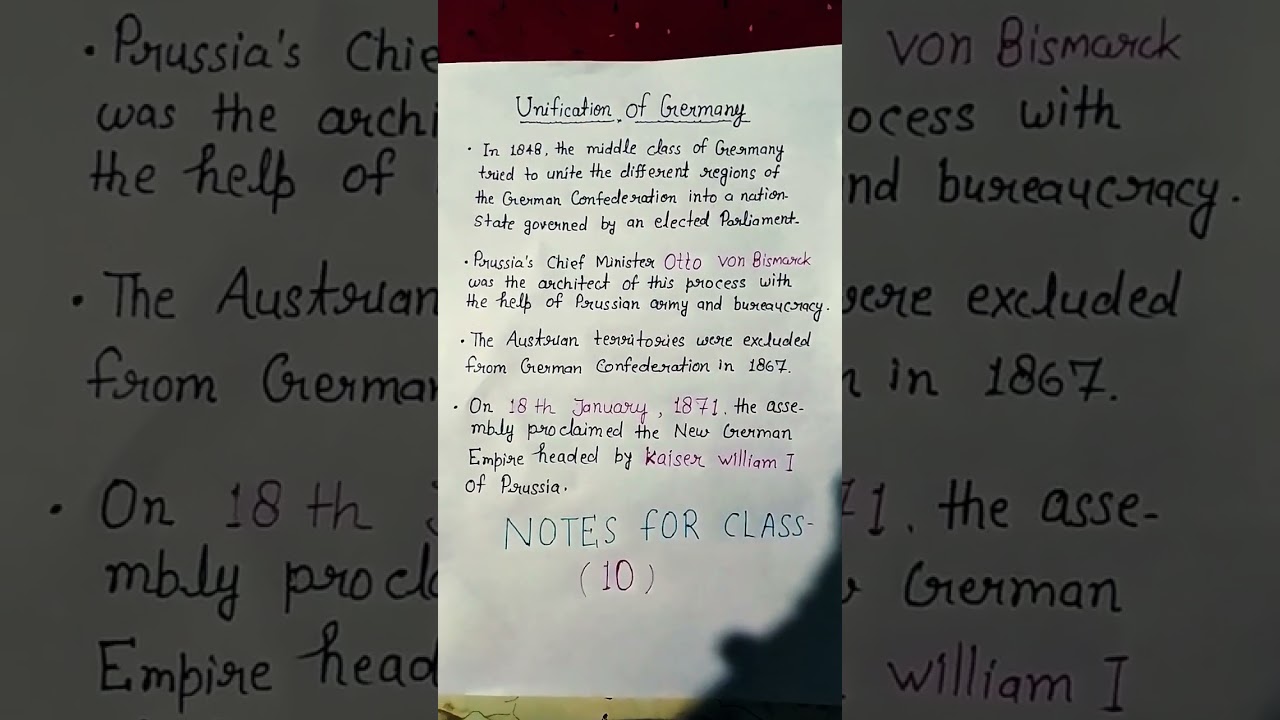 Unification of Germany
• In 1848, the middle class of Germany
tried to unite the different regions of
the German Confederation into a nation-
State governed by an elected Parliament.
• Prussia's Chief Minister Otto von Bismarck
was the architect of this process with
the help of Prussian army and bureaucracy.
• The Austrian territories were excluded
from German Confederation in 1867.
• On 18th January, 1871, the asse-
mbly proclaimed the New German
Empire headed by Kaiser William I
of Prussia.
NOTES FOR CLASS-
(10)